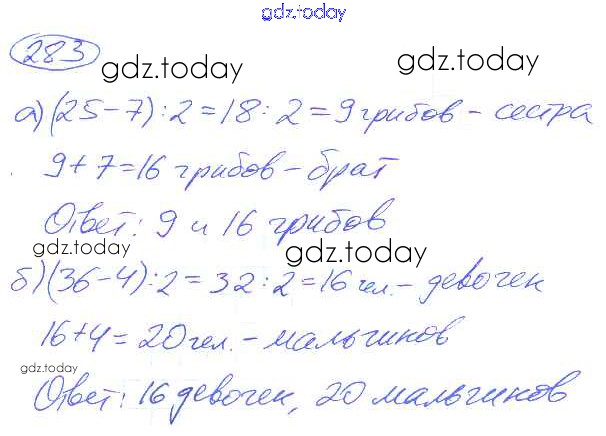 gdz.today
283
gdz.today
gdz.today
а) (25-7):2=18:2=9 грибов - сестра
9+7=16 грибов - брат
Ответ: 9 и 16 грибов
gdz.today
gdz.today
б) (36-4):2=32:2=16 чел. - девочек
16+4=20 чел. - мальчиков
gdz.today
Ответ: 16 девочек, 20 мальчиков